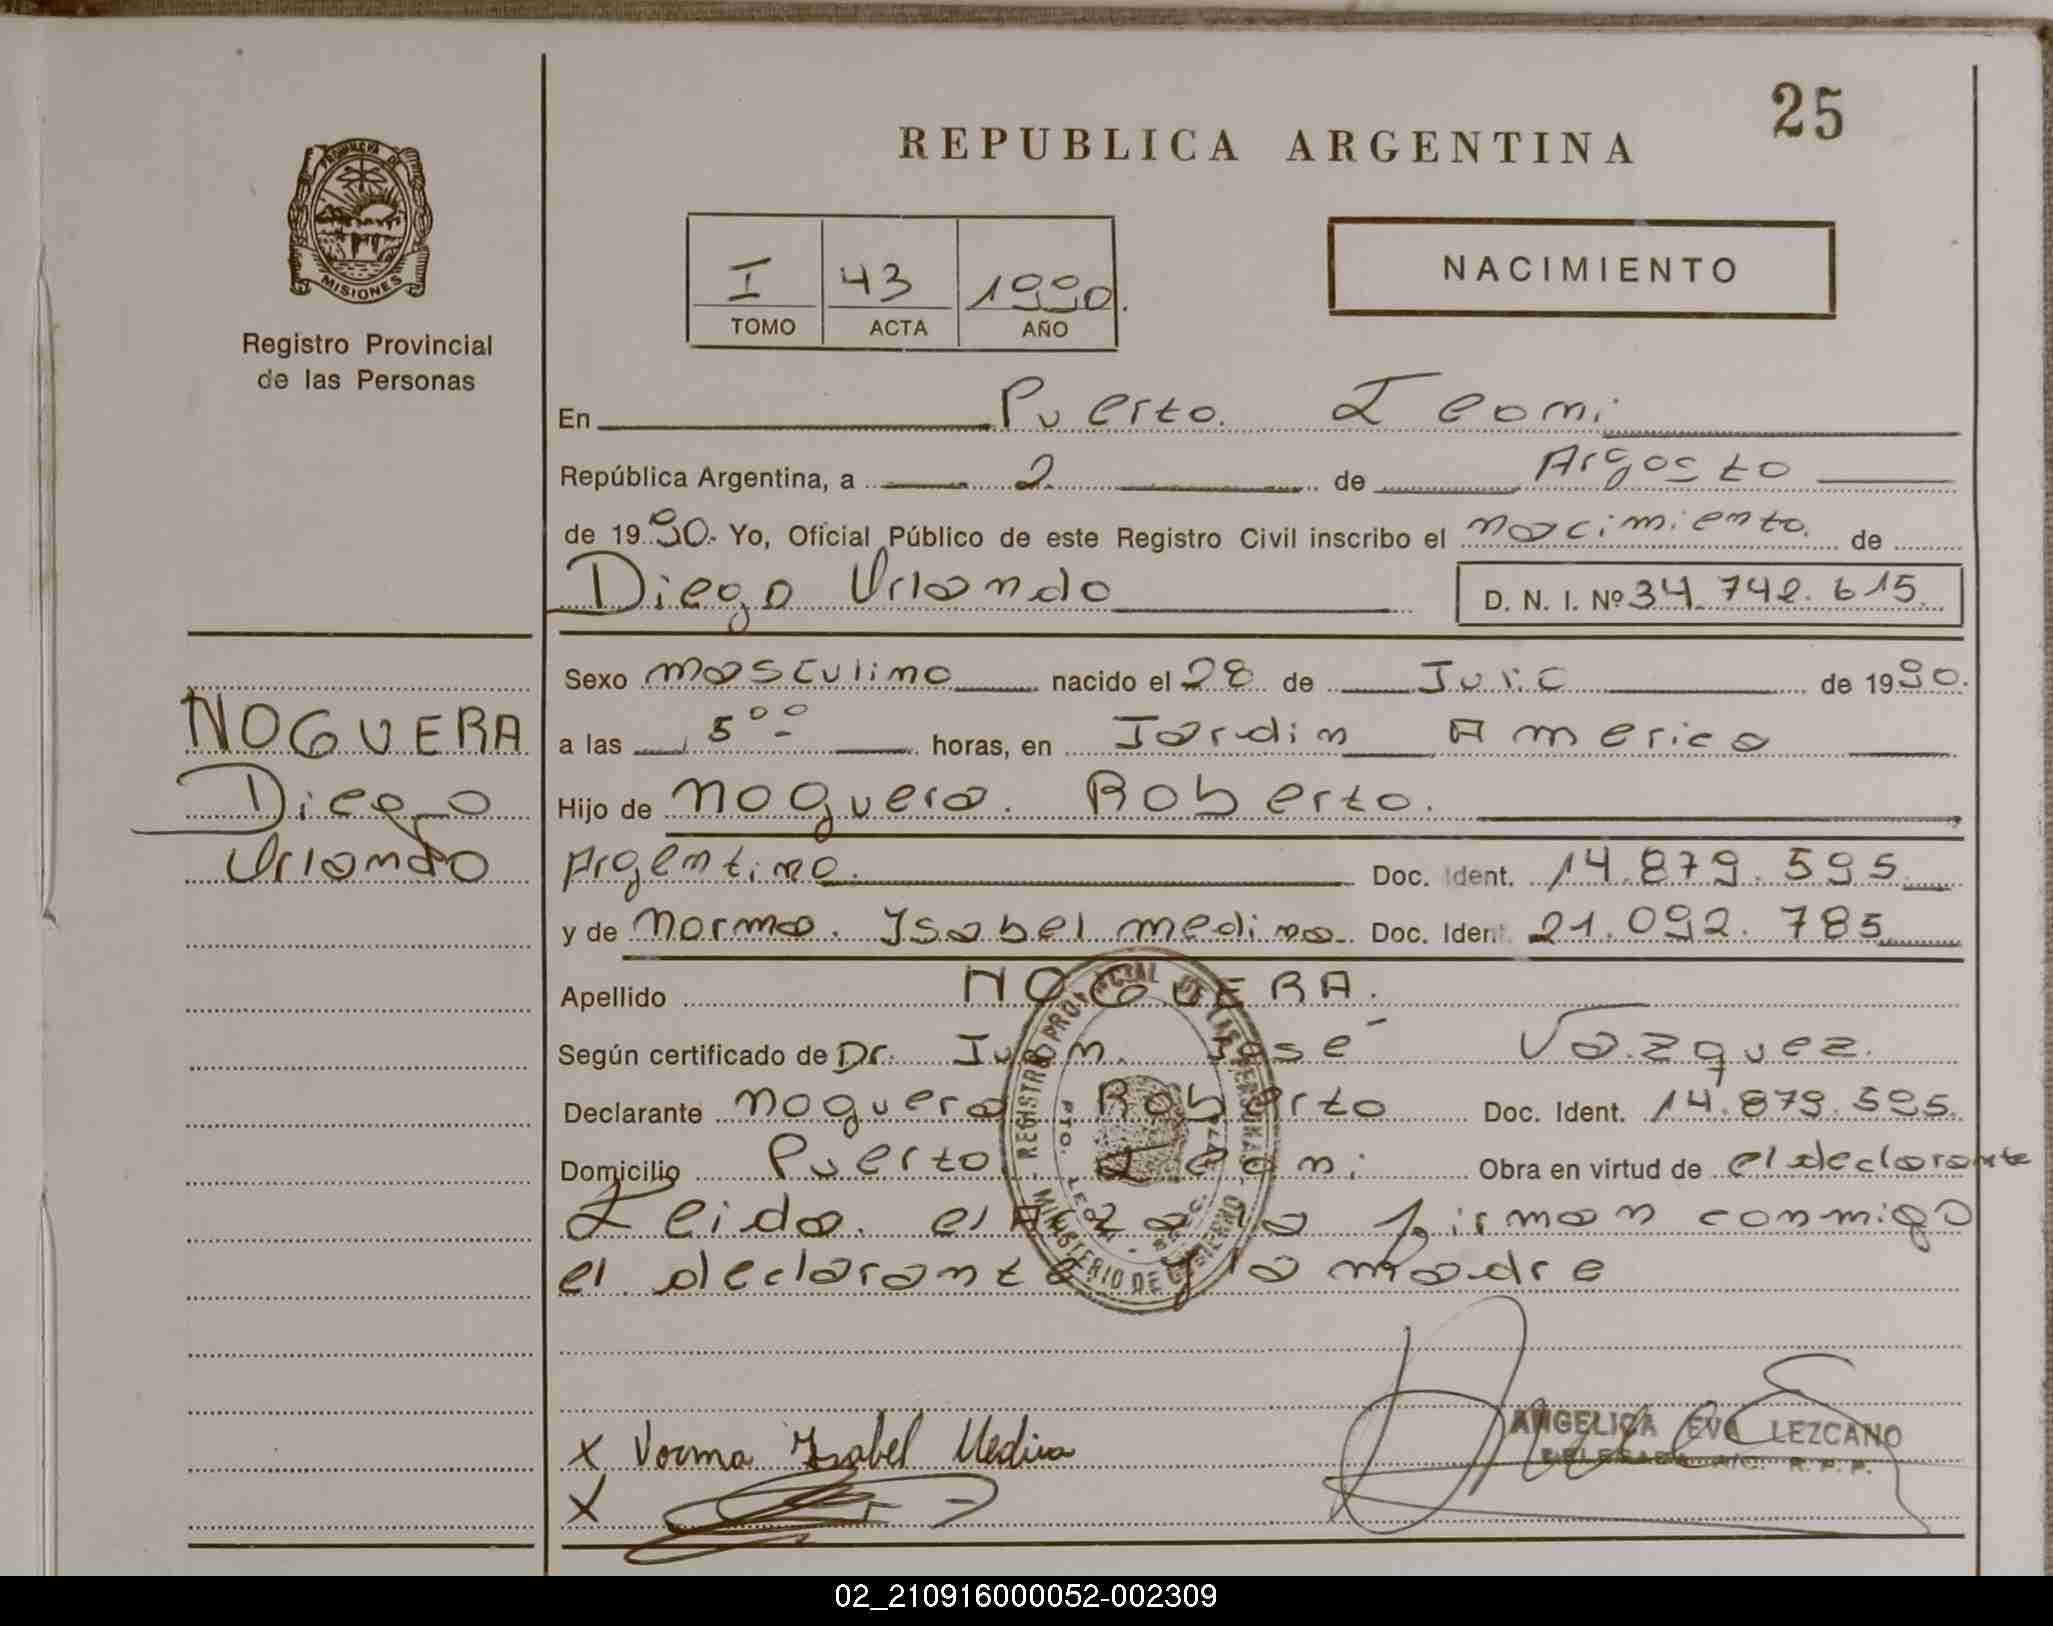 25
REPUBLICA ARGENTINA
PROVINCIA DE
MISIONES
Registro Provincial
de las Personas
I 43 1990.
TOMO ACTA AÑO
NACIMIENTO
En Puerto Leoni
República Argentina, a 2 de Agosto
de 1990. Yo, Oficial Público de este Registro Civil inscribo el nacimiento. de
Diego Orlando D. N. I. Nº 34.742.615
Sexo masculino nacido el 28 de Julio de 1990.
a las 5⁰⁰ horas, en Jardin America
Hijo de Noguera. Roberto.
Argentino. Doc. Ident. 14.879.595
y de Norma. Isabel medina Doc. Ident. 21.092.785
Apellido NOGUERA.
Según certificado de Dr. Juan. José Vazquez.
Declarante Noguera Roberto Doc. Ident. 14.879.595.
Domicilio Puerto Leoni Obra en virtud de el declarante
Leida. el Acta la firman conmigo
el declarante y la madre
NOGUERA
Diego
Orlando
REGISTRO PROVINCIAL DE LAS PERSONAS
MINISTERIO DE GOBIERNO
PTO. LEONI
X Norma Isabel Medina
X
ANGELICA EVA LEZCANO
DELEGADA A/C. R. P. P.
02_210916000052-002309